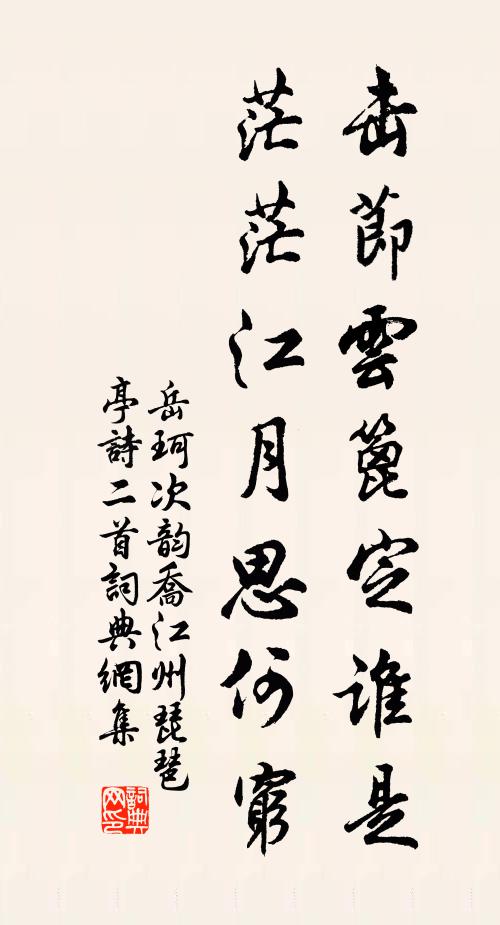 击節雲篦定誰是
茫茫江月思何窮
岳珂次韵喬江州琵琶
亭詩二首詞典網集
詞典
网印